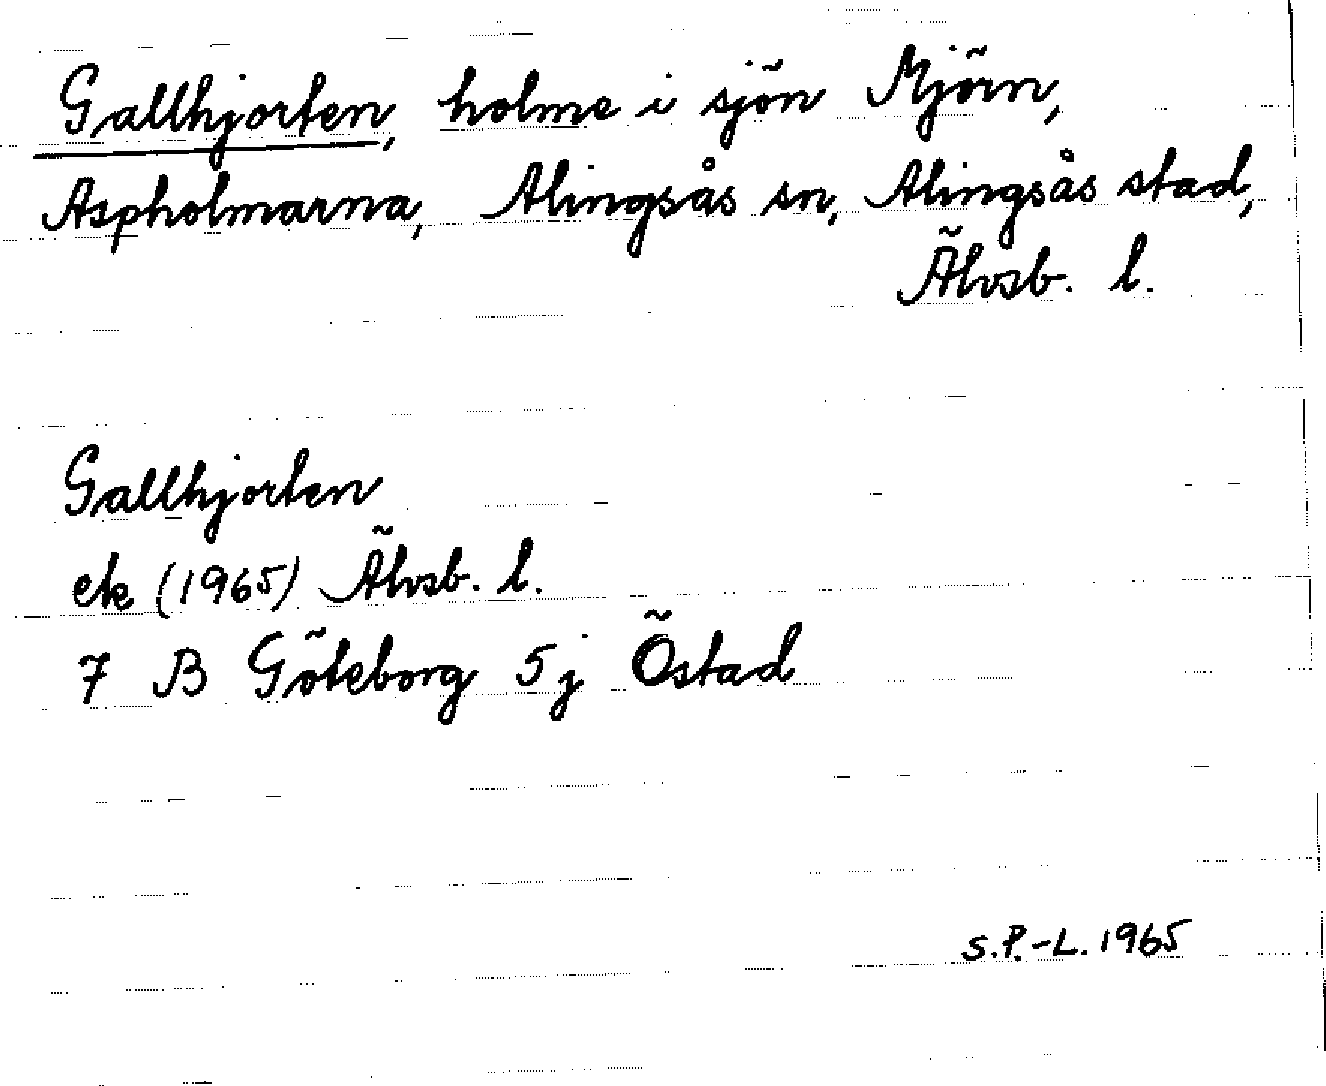 Gallhjorten, holme i sjön Mjörn,
Aspholmarna, Alingsås sn, Alingsås stad,
Älvsb. l.
Gallhjorten
ek (1965) Älvsb. l.
7 B Göteborg 5j Östad
S.P.-L. 1965